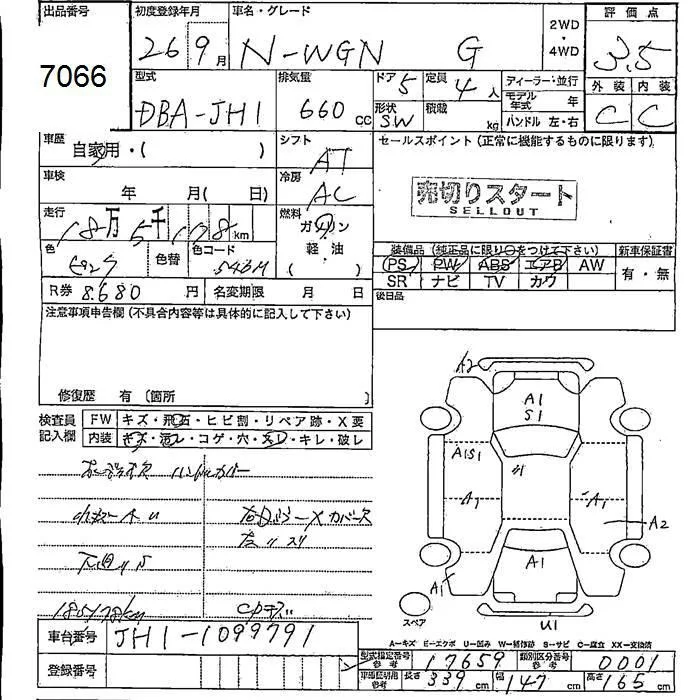 出品番号
7066
初度登録年月
26 9月
車名・グレード
N-WGN G
2WD
・
4WD
評価点
3.5
外装 内装
C C
型式
DBA-JH1
排気量
660 cc
ドア 5
定員 4人
形状 SW
積載 kg
ディーラー・並行
モデル年式 年
ハンドル 左・右
車歴
自家用・( )
シフト
AT
セールスポイント(正常に機能するものに限ります)
売切りスタート
SELLOUT
車検
年 月( 日)
冷房
AC
走行
18万5千178km
燃料
ガソリン
・
軽・油
( )
色
色替
色コード
装備品(純正品に限り○をつけて下さい)
新車保証書
PS PW ABS エアB AW
有・無
SR ナビ TV カワ
R券 8,680円
名変期限 月 日
後日品
注意事項申告欄(不具合内容等は具体的に記入して下さい)
修復歴 有〔箇所 〕
検査員
記入欄
FW キズ・飛石・ヒビ割・リペア跡・X要
内装 キズ・汚レ・コゲ・穴・スレ・キレ・破レ
ハンドルカバー
下廻りS
185178km
A2
A1
S1
A1S1
A1
A1
A2
A1
A1
U1
スペア
A-キズ E-エクボ U-凹み W-補修跡 S-サビ C-腐食 XX-交換済
車台番号 JH1-1099791
登録番号
型式指定番号
参考
17659
類別区分番号
参考
0001
車両証明用
参考
長さ 339cm 幅 147cm 高さ 165cm